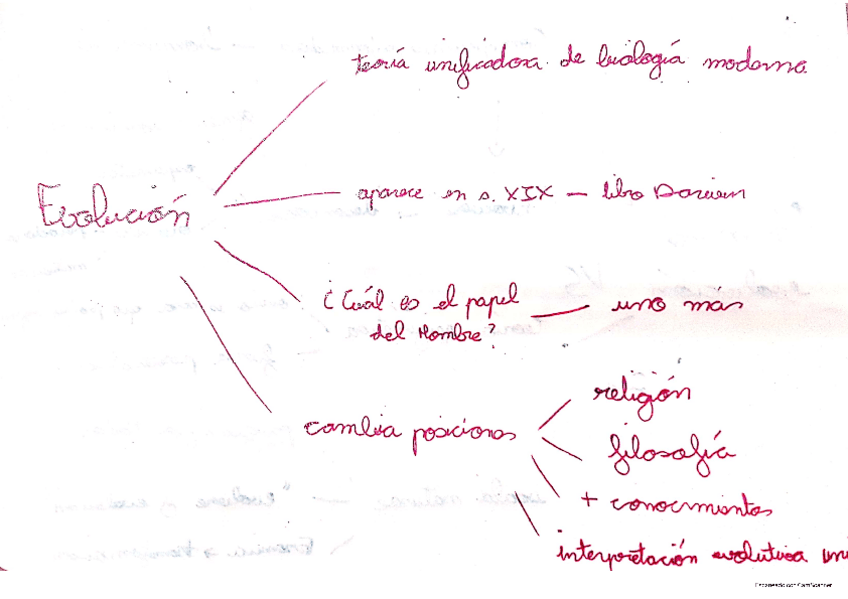 teoría unificadora de biología moderna
Evolución
aparece en s. XIX — libro Darwin
¿Cuál es el papel
del Hombre?
uno más
cambia posiciones
religión
filosofía
+ conocimientos
interpretación evolutiva
Escaneado con CamScanner